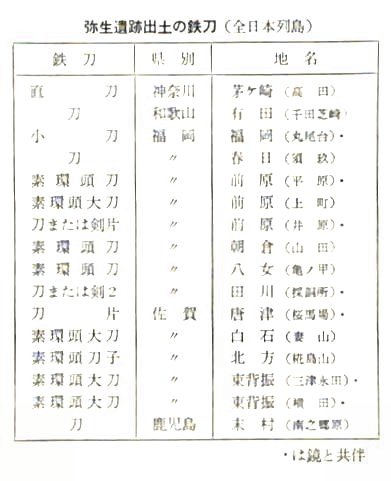 弥生遺跡出土の鉄刀(全日本列島)
鉄刀 県別 地名
直刀 神奈川 茅ケ崎(高田)
刀 和歌山 有田(千田芝崎)
小刀 福岡 福岡(丸尾台)・
刀 〃 春日(須玖)
素環頭刀 〃 前原(平原)・
素環頭大刀 〃 前原(上町)
刀または剣片 〃 前原(井原)・
素環頭刀 〃 朝倉(山田)
素環頭刀 〃 八女(亀ノ甲)
刀または剣2 〃 田川(採銅所)・
刀片 佐賀 唐津(桜馬場)・
素環頭大刀 〃 白石(妻山)
素環頭刀子 〃 北方(椛島山)
素環頭大刀 〃 東背振(三津永田)・
素環頭大刀 〃 東背振(横田)・
刀 鹿児島 末村(南之郷原)
・は鏡と共伴